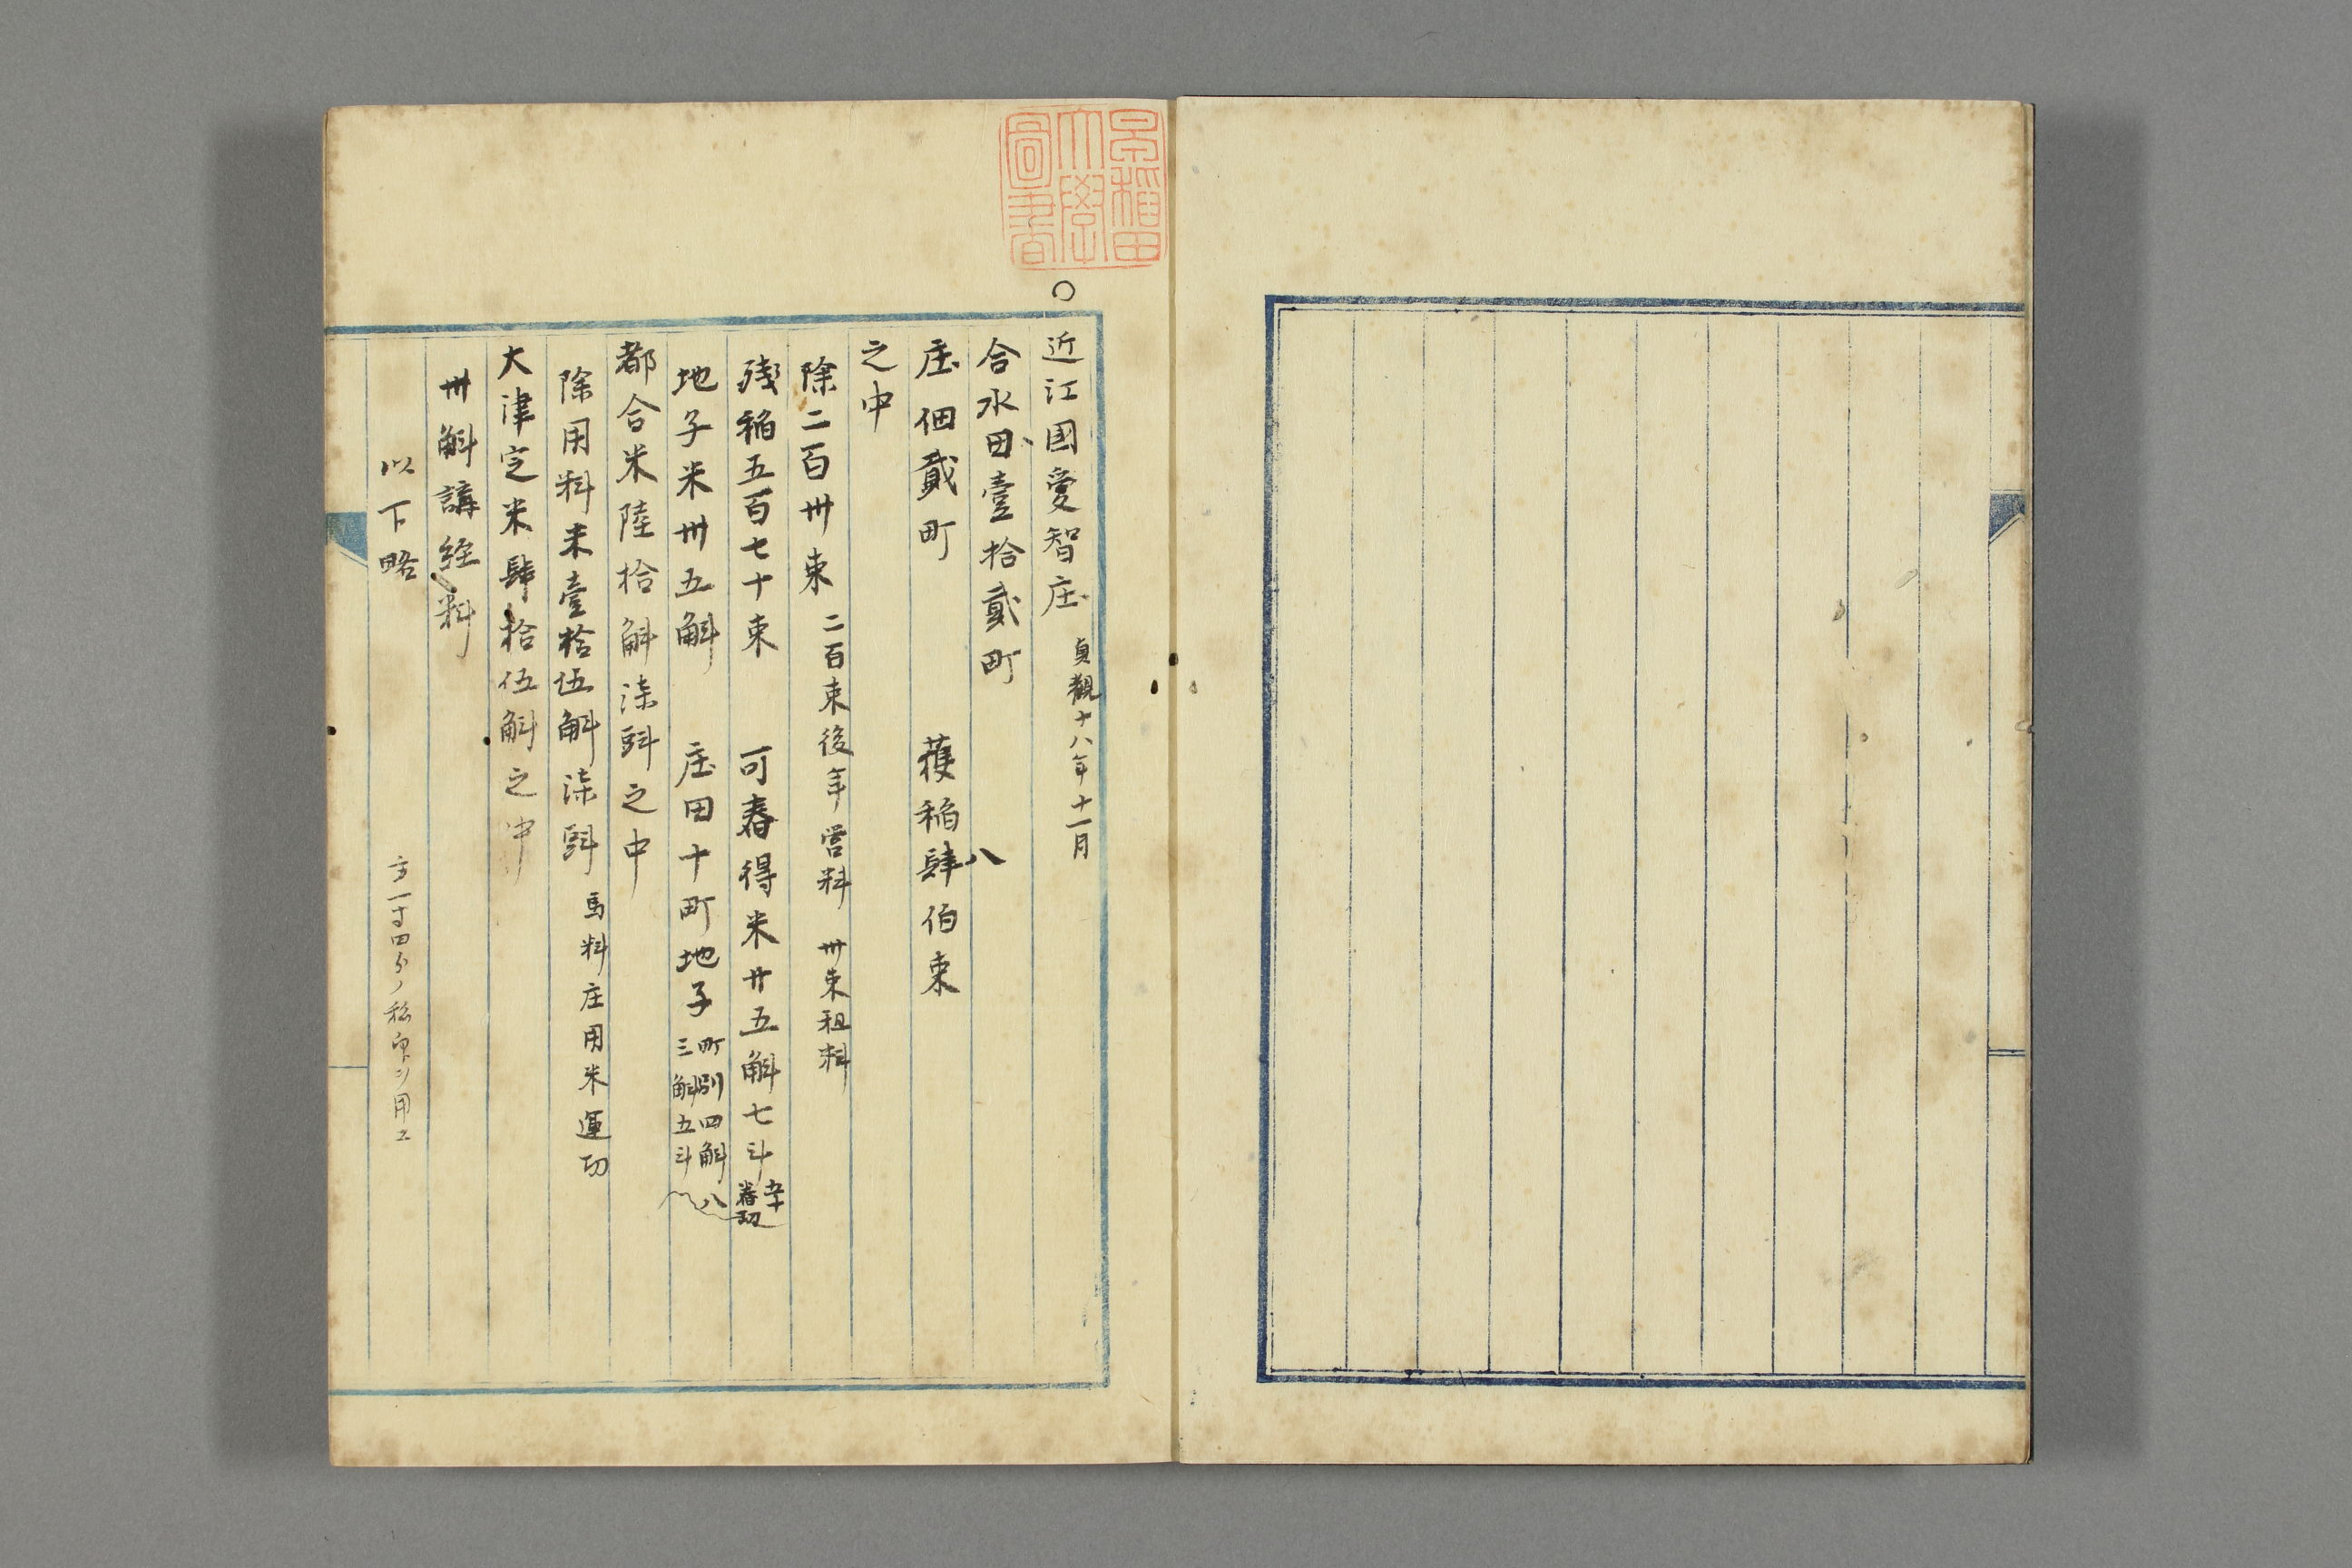 早稲田大學圖書
○
近江国愛智庄 貞觀十八年十一月
合水田壹拾貳町
庄佃貳町 穫稲肆伯束
八
之中
除二百卅束 二百束後年営料 卅束租料
残稲五百七十束 可舂得米廿五斛七斗
舂功
地子米卅五斛 庄田十町地子 町別四斛
三斛五斗
八
都合米陸拾斛漆㪷之中
除用料米壹拾伍斛漆㪷 馬料庄用米運功
大津定米肆拾伍斛之中
卅斛講経料
以下略
方一寸四分ノ
用